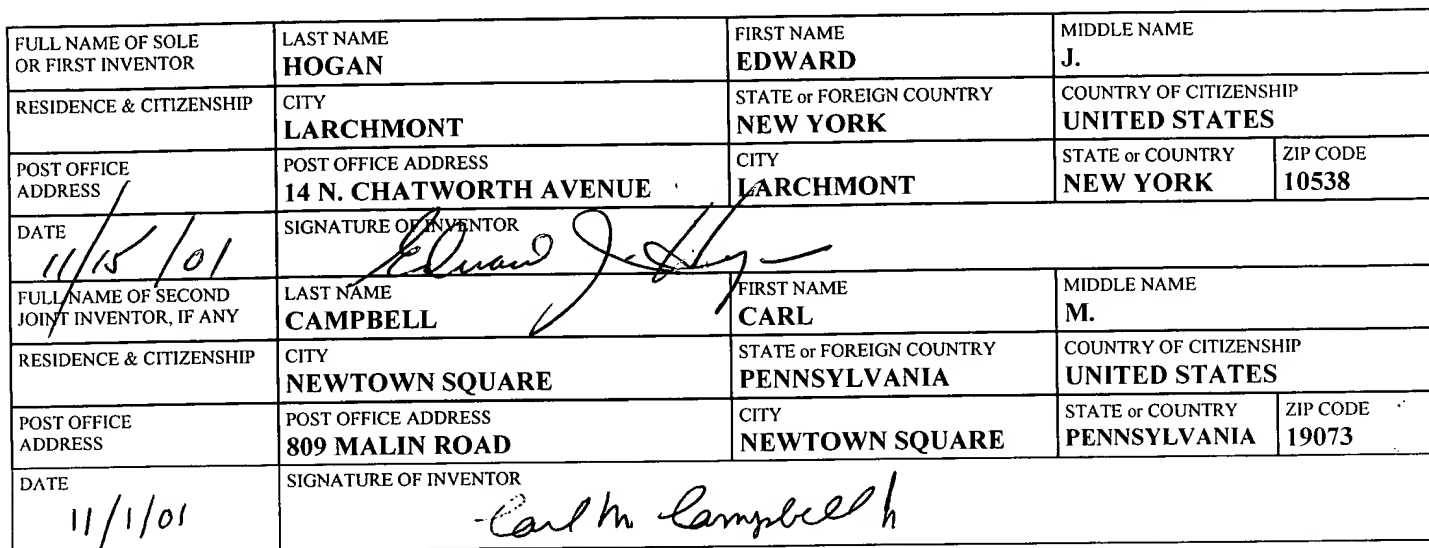 FULL NAME OF SOLE OR FIRST INVENTOR
LAST NAME HOGAN
FIRST NAME EDWARD
MIDDLE NAME J.
RESIDENCE & CITIZENSHIP
CITY LARCHMONT
STATE or FOREIGN COUNTRY NEW YORK
COUNTRY OF CITIZENSHIP UNITED STATES
POST OFFICE ADDRESS
POST OFFICE ADDRESS 14 N. CHATWORTH AVENUE
CITY LARCHMONT
STATE or COUNTRY NEW YORK
ZIP CODE 10538
DATE 11/15/01
SIGNATURE OF INVENTOR Edward J. Hogan
FULL NAME OF SECOND JOINT INVENTOR, IF ANY
LAST NAME CAMPBELL
FIRST NAME CARL
MIDDLE NAME M.
RESIDENCE & CITIZENSHIP
CITY NEWTOWN SQUARE
STATE or FOREIGN COUNTRY PENNSYLVANIA
COUNTRY OF CITIZENSHIP UNITED STATES
POST OFFICE ADDRESS
POST OFFICE ADDRESS 809 MALIN ROAD
CITY NEWTOWN SQUARE
STATE or COUNTRY PENNSYLVANIA
ZIP CODE 19073
DATE 11/1/01
SIGNATURE OF INVENTOR Carl M Campbell